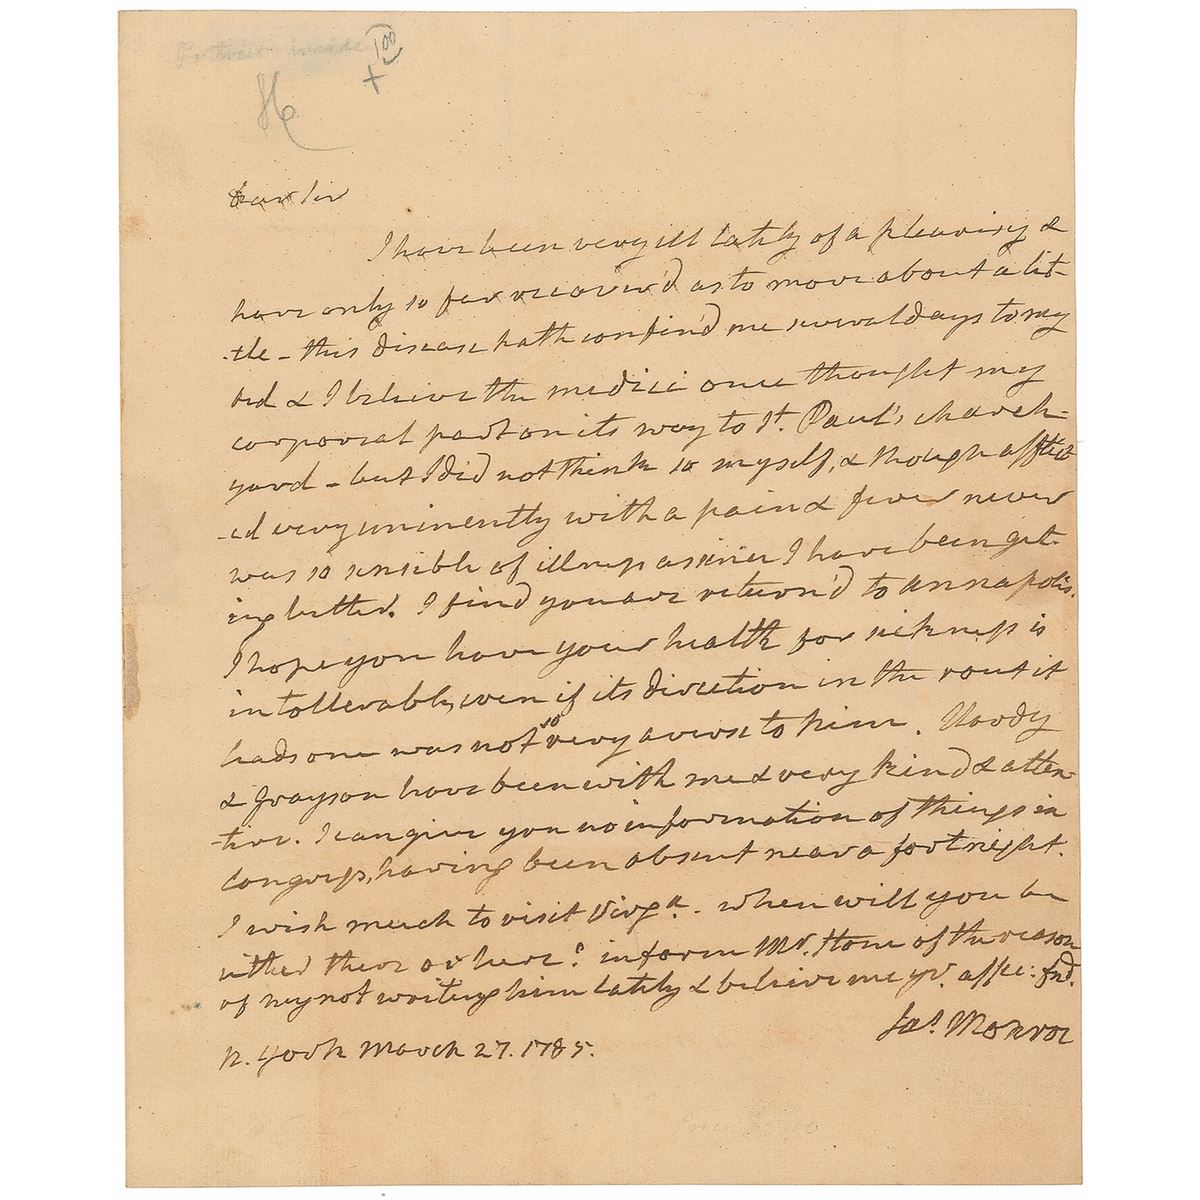 100
Dear Sir
I have been very ill lately of a pleurisy &
have only so far recover'd as to move about a lit-
-tle - this disease hath confin'd me several days to my
bed & I believe the medici once thought my
corporeal part on its way to St. Paul's church-
yard - but I did not think so myself, & though afflict
-ed very eminently with a pain & fever never
was so sensible of illness as since I have been get-
ing better. I find you are return'd to Annapolis.
I hope you have your health for sickness is
intollerable, even if its direction in the rout it
leads one was not so very averse to him. Hardy
& Grayson have been with me & very kind & atten-
-tive. I can give you no information of things in
Congress, having been absent near a fortnight.
I wish much to visit Virga. when will you be
either there or here? inform Mr. Stone of the reason
of my not writing him lately & believe me yr. affec: fnd.
Jas. Monroe
N. York March 27. 1785.